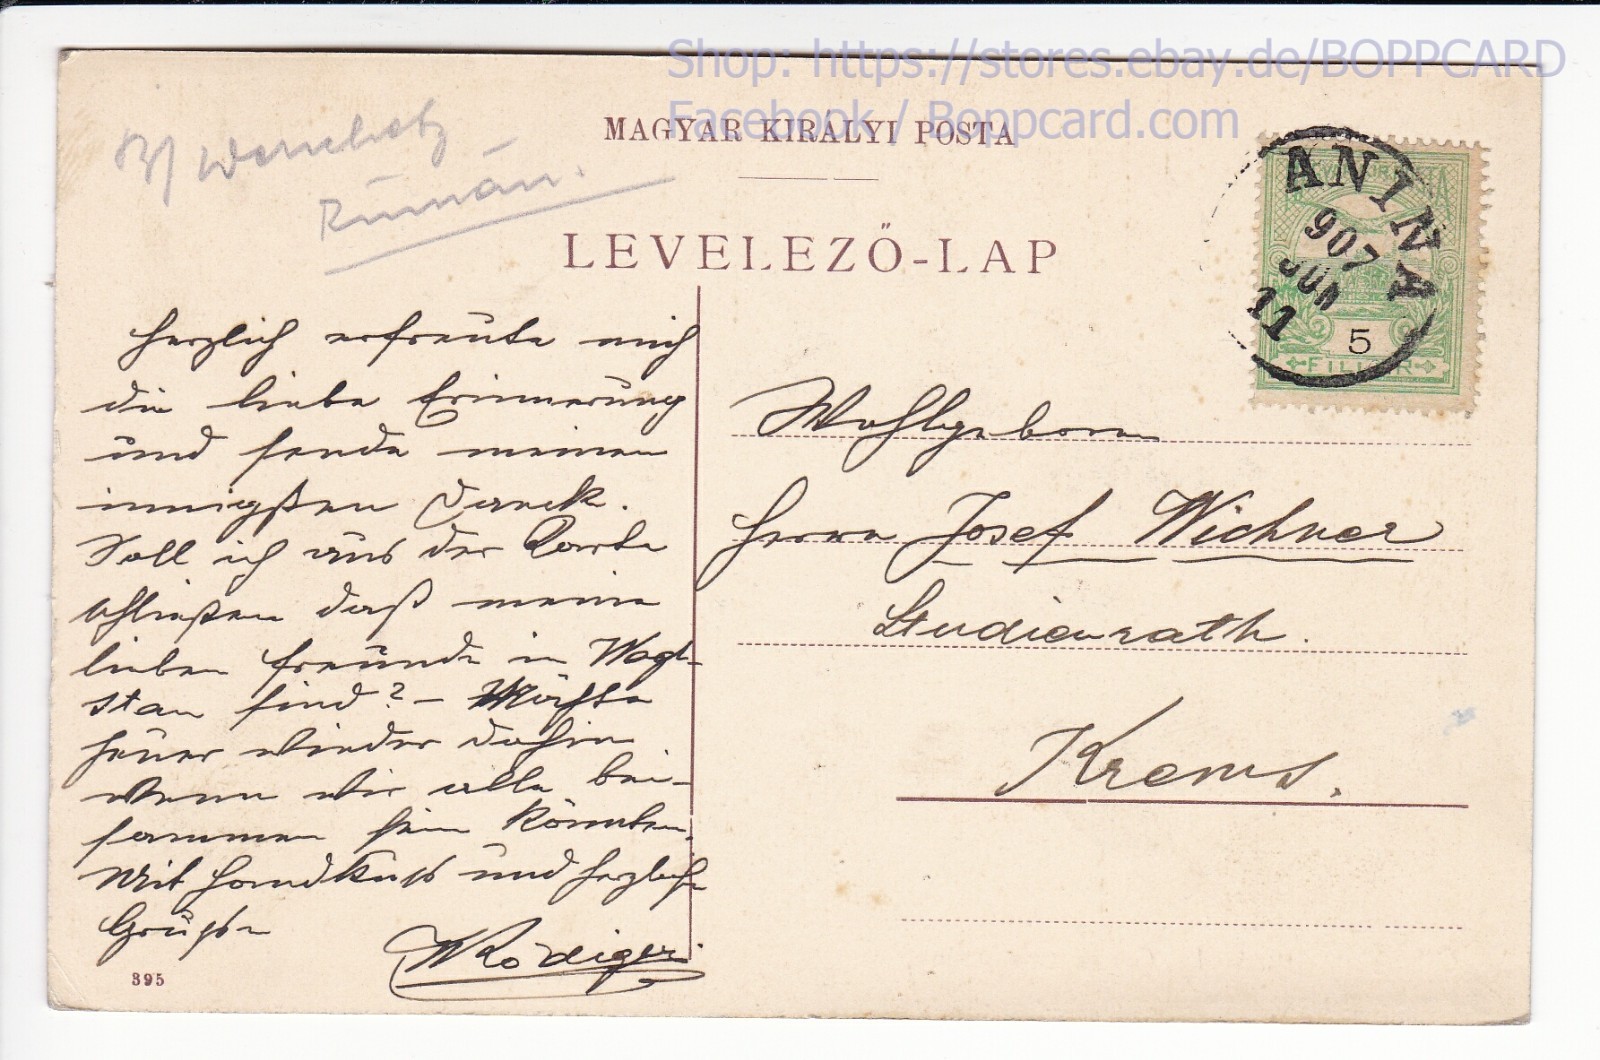 Shop: https://stores.ebay.de/BOPPCARD
Facebook / Boppcard.com
MAGYAR KIRÁLYI POSTA
Rumän.
LEVELEZŐ-LAP
ANINA
907
JUN
11
5
FILLÉR
Herzlich erfreute mich
die liebe Erinnerung
und sende meinen
innigsten Danck.
Soll ich aus der Karte
schließen daß meine
lieben Freunde in
sind? – Möchte
heuer wieder dahin
wenn wir alle bei-
sammen sein könnten.
Mit Handkuß und herzliche
Grüße
Wohlgeboren
Herrn Josef Wichner
Studienrath.
Krems.
395